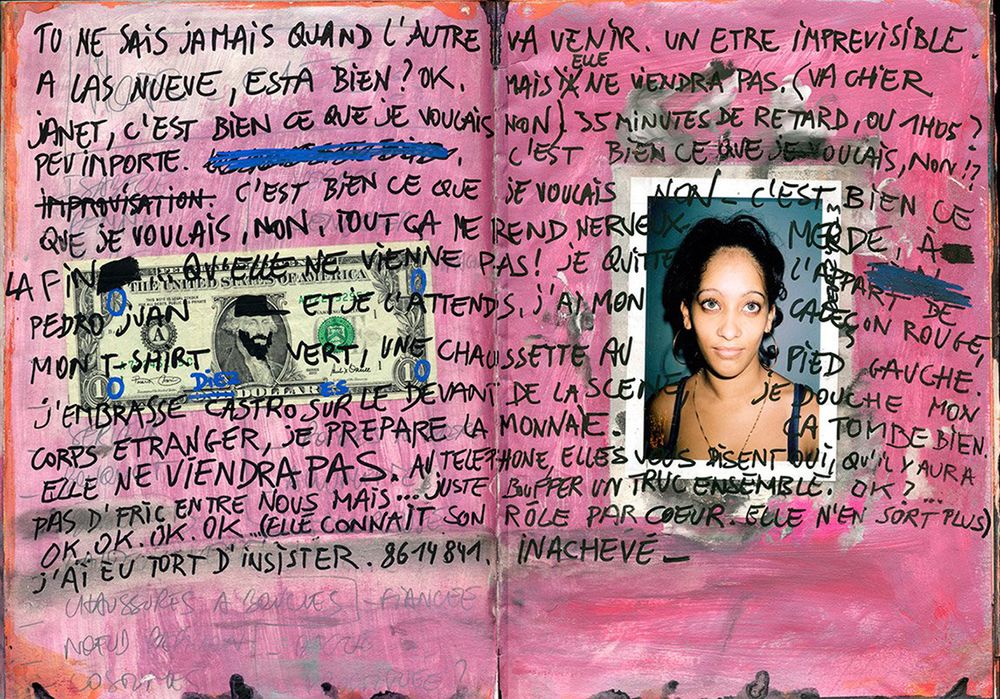 TU NE SAIS JAMAIS QUAND L'AUTRE VA VENIR. UN ETRE IMPREVISIBLE.
A LAS NUEVE, ESTA BIEN? OK. MAIS ELLE NE VIENDRA PAS. (VA CHIER
JANET, C'EST BIEN CE QUE JE VOULAIS NON). 35 MINUTES DE RETARD, OU 1H05?
PEU IMPORTE. C'EST BIEN CE QUE JE VOULAIS, NON!?
IMPROVISATION. C'EST BIEN CE QUE JE VOULAIS NON_ C'EST BIEN CE
QUE JE VOULAIS, NON, TOUT ÇA ME REND NERVEUX. MERDE, À
LA FIN QU'ELLE NE VIENNE PAS! JE QUITTE L'APPART DE
PEDRO JUAN ET JE L'ATTENDS, J'AI MON CALEÇON ROUGE,
MON T-SHIRT VERT, UNE CHAUSSETTE AU PIED GAUCHE.
J'EMBRASSE CASTRO SUR LE DEVANT DE LA SCENE, JE DOUCHE MON
CORPS ETRANGER, JE PREPARE LA MONNAIE. ÇA TOMBE BIEN.
ELLE NE VIENDRA PAS. AU TELEPHONE, ELLES VOUS DISENT OUI, QU'IL Y AURA
PAS D'FRIC ENTRE NOUS MAIS... JUSTE BUFFER UN TRUC ENSEMBLE. OK?...
OK.OK.OK.OK...(ELLE CONNAIT SON RÔLE PAR COEUR. ELLE N'EN SORT PLUS)
J'AI EU TORT D'INSISTER. 8614841. INACHEVÉ_
CHAUSSURES A BOUCLES FIANCEE
NŒUD
THE UNITED STATES OF AMERICA
A
DIEZ
DOLLAR ES